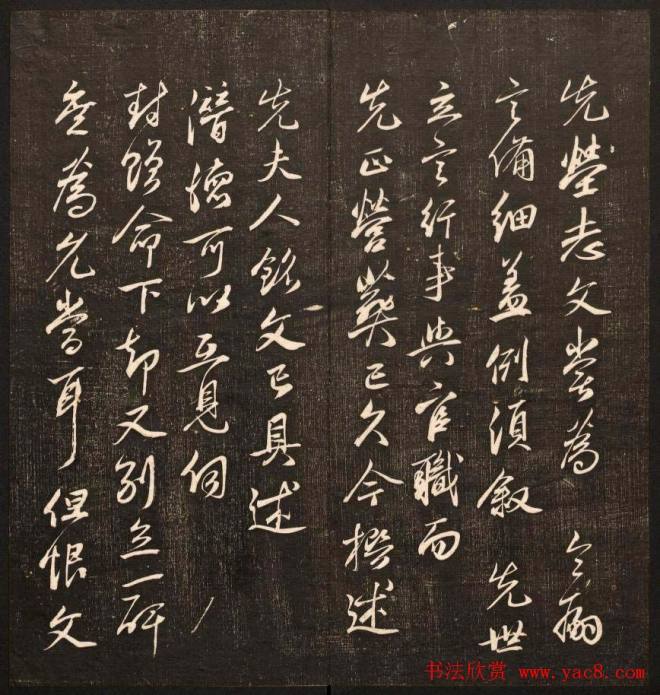 先塋志文嘗為 令嗣
言備細蓋例須叙 先世
立言行事與官職而
先正營葬已久今撰述
先夫人銘文已具述
潛德可以互見伺
封贈命下却又别立一碑
為允當耳但恨文
书法欣赏 www.yac8.com